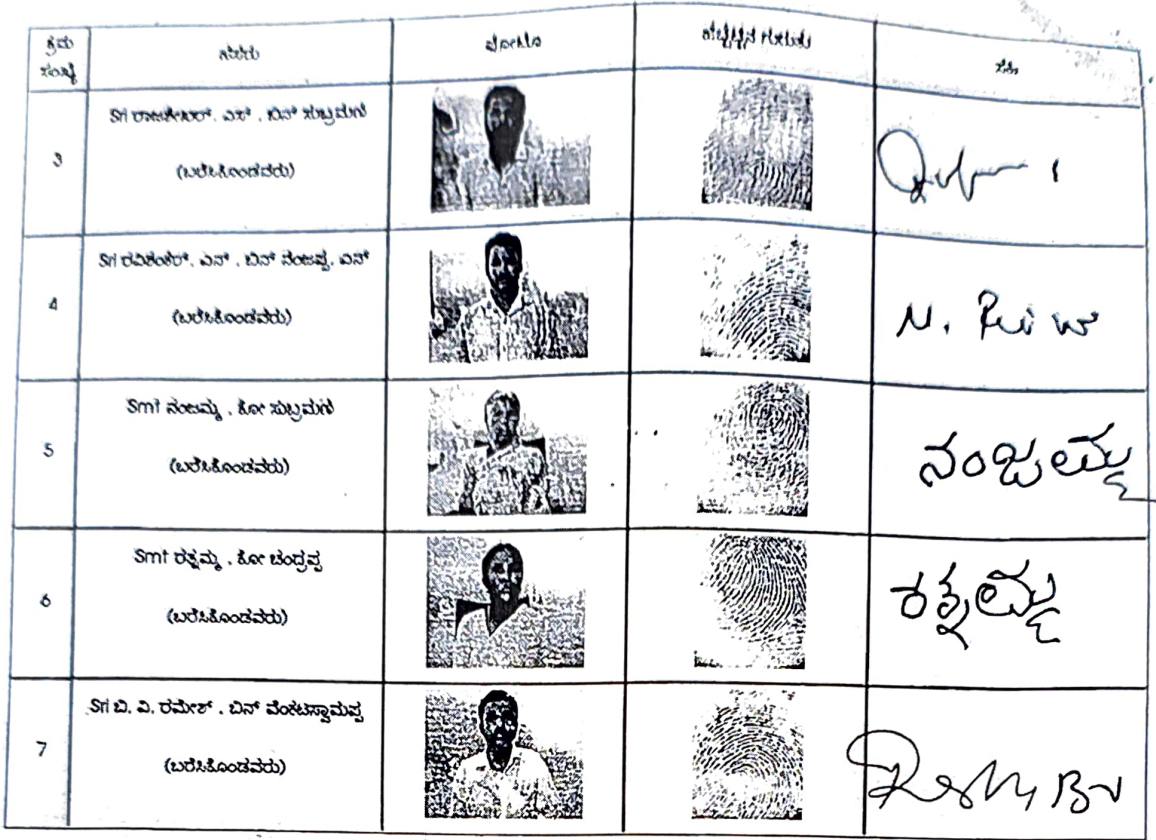 ಕ್ರಮ ಸಂಖ್ಯೆ ಹೆಸರು ಫೋಟೊ ಹೆಬ್ಬೆಟ್ಟಿನ ಗುರುತು ಸಹಿ
3 Sri ರಾಜಶೇಖರ್. ಎಸ್ . ಬಿನ್ ಸುಬ್ರಮಣಿ
(ಬರೆಸಿಕೊಂಡವರು)
4 Sri ರವಿಶಂಕರ್. ಎನ್ . ಬಿನ್ ನಂಜಪ್ಪ. ಎನ್
(ಬರೆಸಿಕೊಂಡವರು) N.
5 Smt ನಂಜಮ್ಮ . ಕೋ ಸುಬ್ರಮಣಿ
(ಬರೆಸಿಕೊಂಡವರು) ನಂಜಮ್ಮ
6 Smt ರತ್ನಮ್ಮ . ಕೋ ಚಂದ್ರಪ್ಪ
(ಬರೆಸಿಕೊಂಡವರು) ರತ್ನಮ್ಮ
7 Sri ಬಿ. ವಿ. ರಮೇಶ್ . ಬಿನ್ ವೆಂಕಟಸ್ವಾಮಪ್ಪ
(ಬರೆಸಿಕೊಂಡವರು)